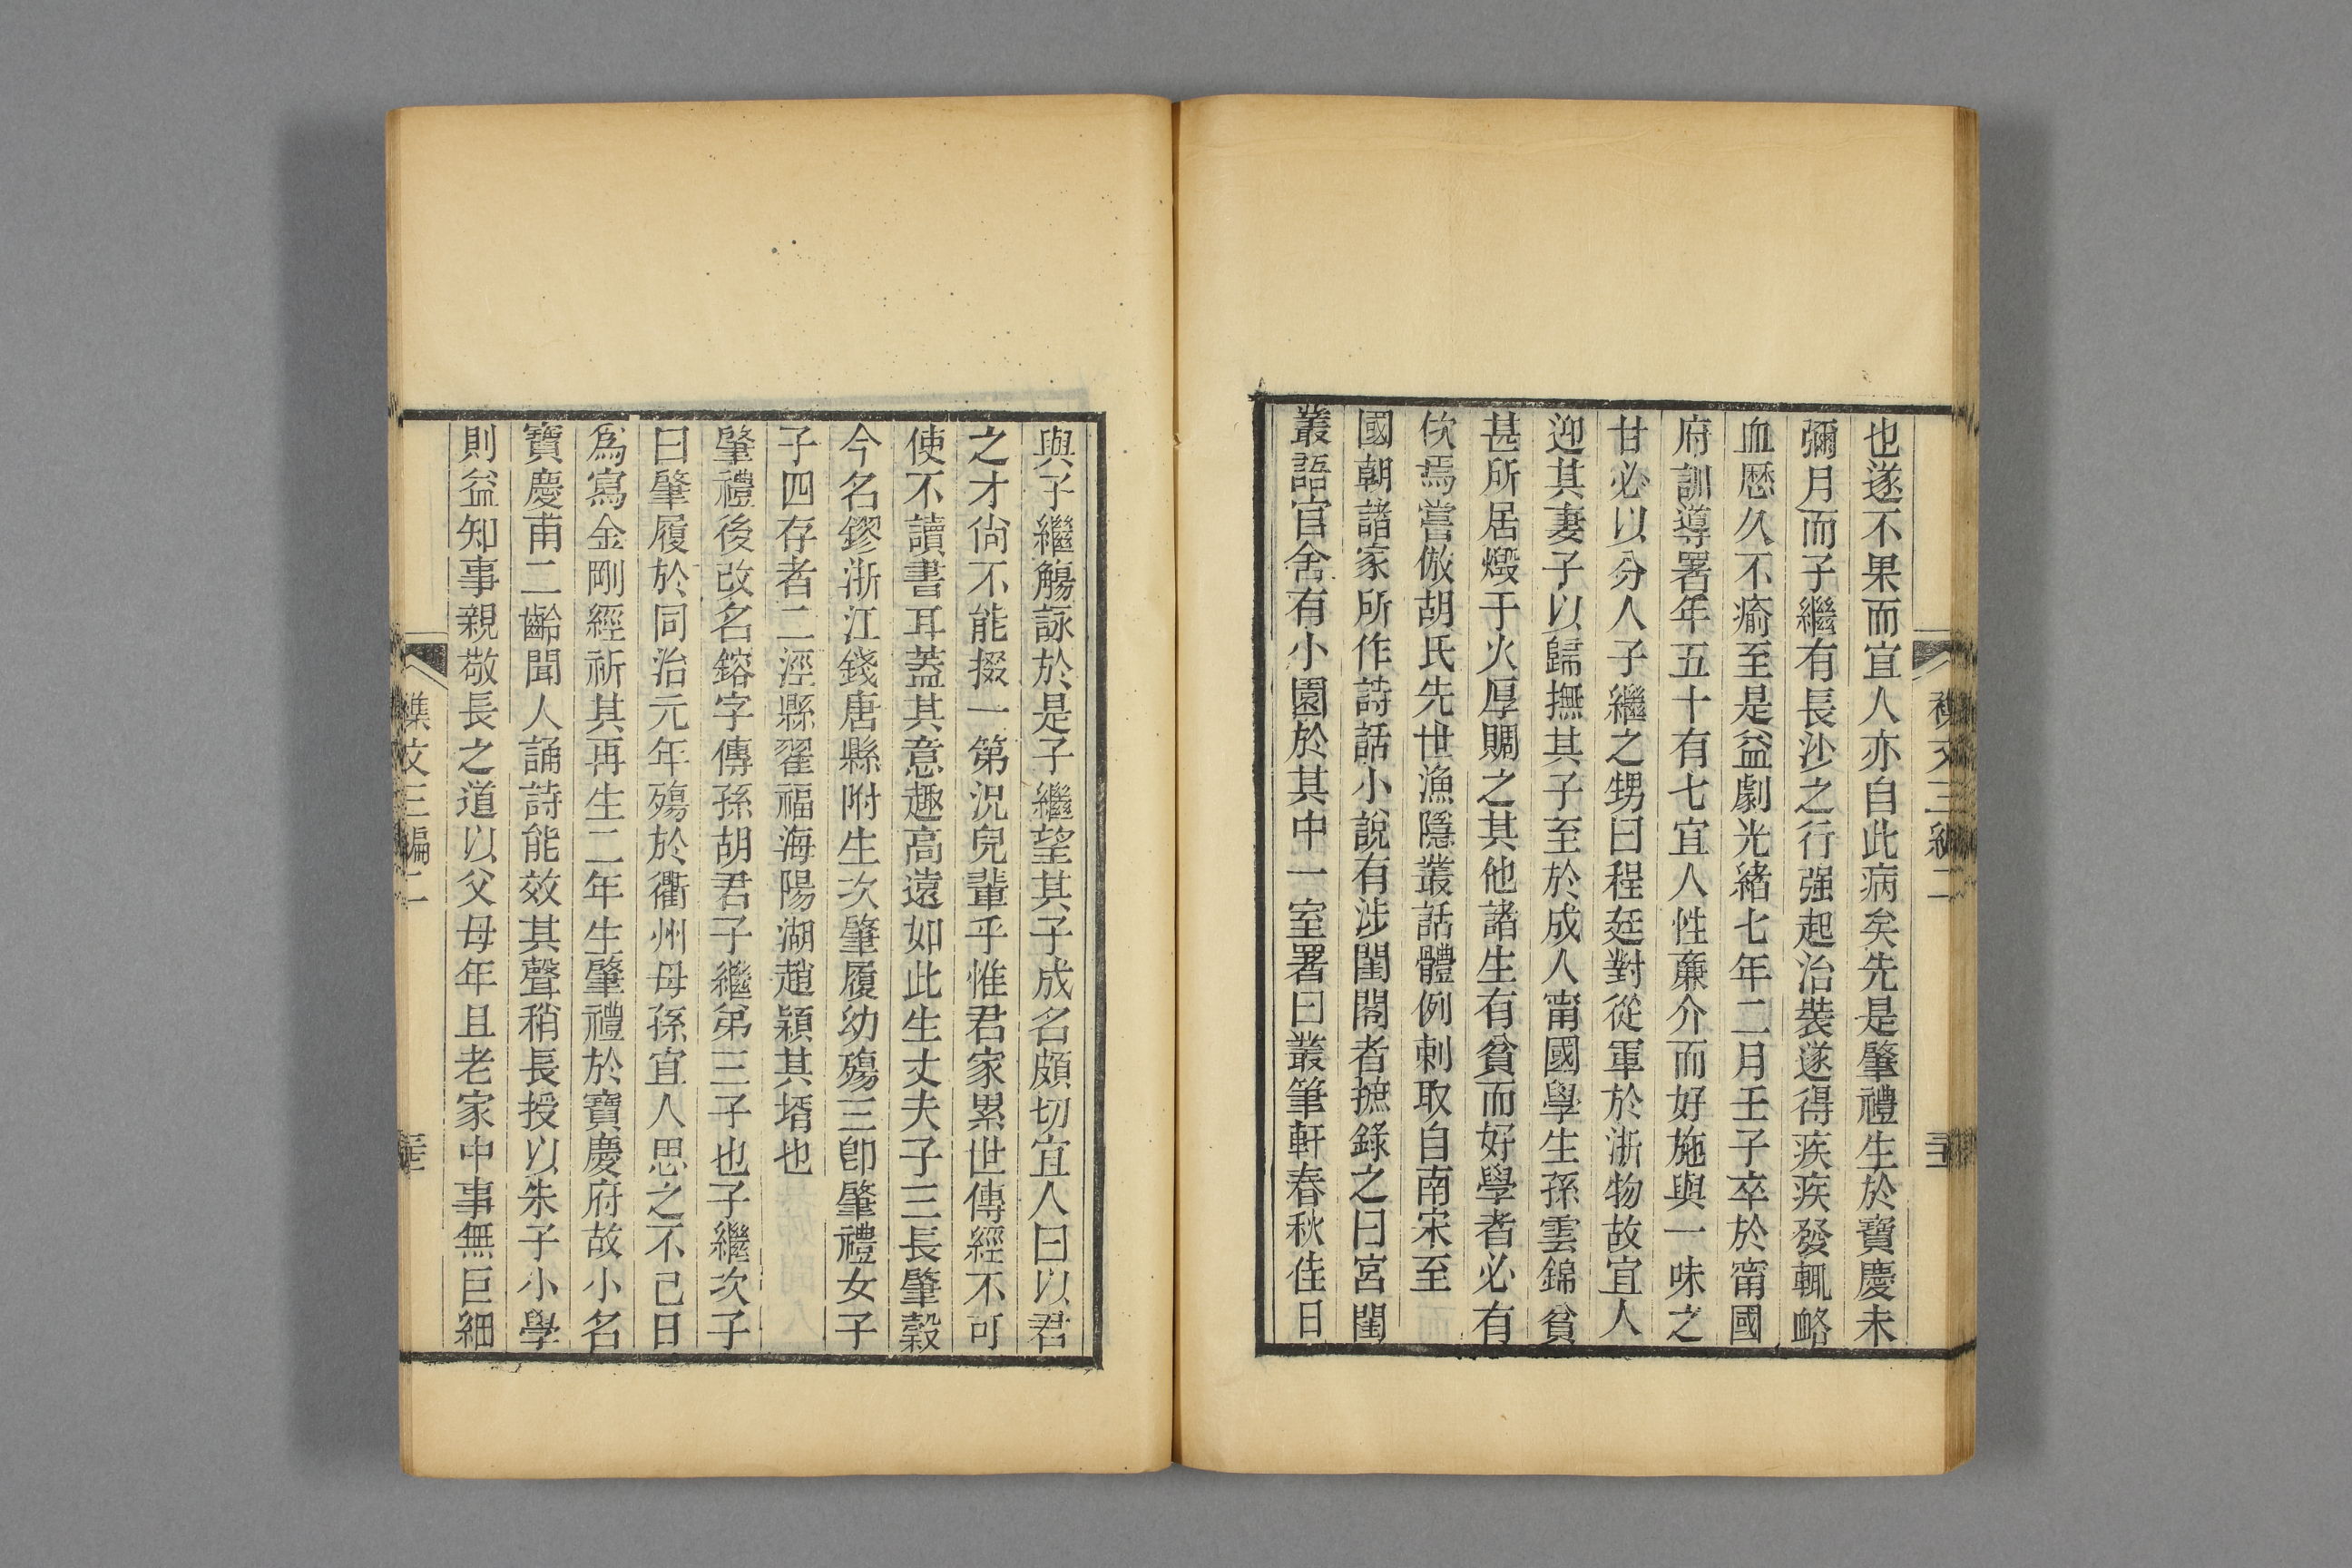 也遂不果而宜人亦自此病矣先是肇禮生於寶慶未
彌月而子繼有長沙之行强起治裝遂得疾疾發輒衉
血歷久不瘉至是益劇光緒七年二月壬子卒於甯國
府訓導署年五十有七宜人性廉介而好施與一味之
甘必以分人子繼之甥曰程廷對從軍於浙物故宜人
迎其妻子以歸撫其子至於成人甯國學生孫雲錦貧
甚所居燬于火厚賙之其他諸生有貧而好學者必有
佽焉嘗倣胡氏先世漁隱叢話體例刺取自南宋至
國朝諸家所作詩話小說有涉閨閣者摭錄之曰宮閨
叢語官舍有小園於其中一室署曰叢筆軒春秋佳日
與子繼觴詠於是子繼望其子成名頗切宜人曰以君
之才尙不能掇一第況兒輩乎惟君家累世傳經不可
使不讀書耳蓋其意趣高遠如此生丈夫子三長肇瑴
今名鏐浙江錢唐縣附生次肇履幼殤三卽肇禮女子
子四存者二涇縣翟福海陽湖趙穎其壻也
肇禮後改名鎔字傳孫胡君子繼弟三子也子繼次子
曰肇履於同治元年殤於衢州母孫宜人思之不已日
爲寫金剛經祈其再生二年生肇禮於寶慶府故小名
寶慶甫二齡聞人誦詩能效其聲稍長授以朱子小學
則益知事親敬長之道以父母年且老家中事無巨細
文三編二